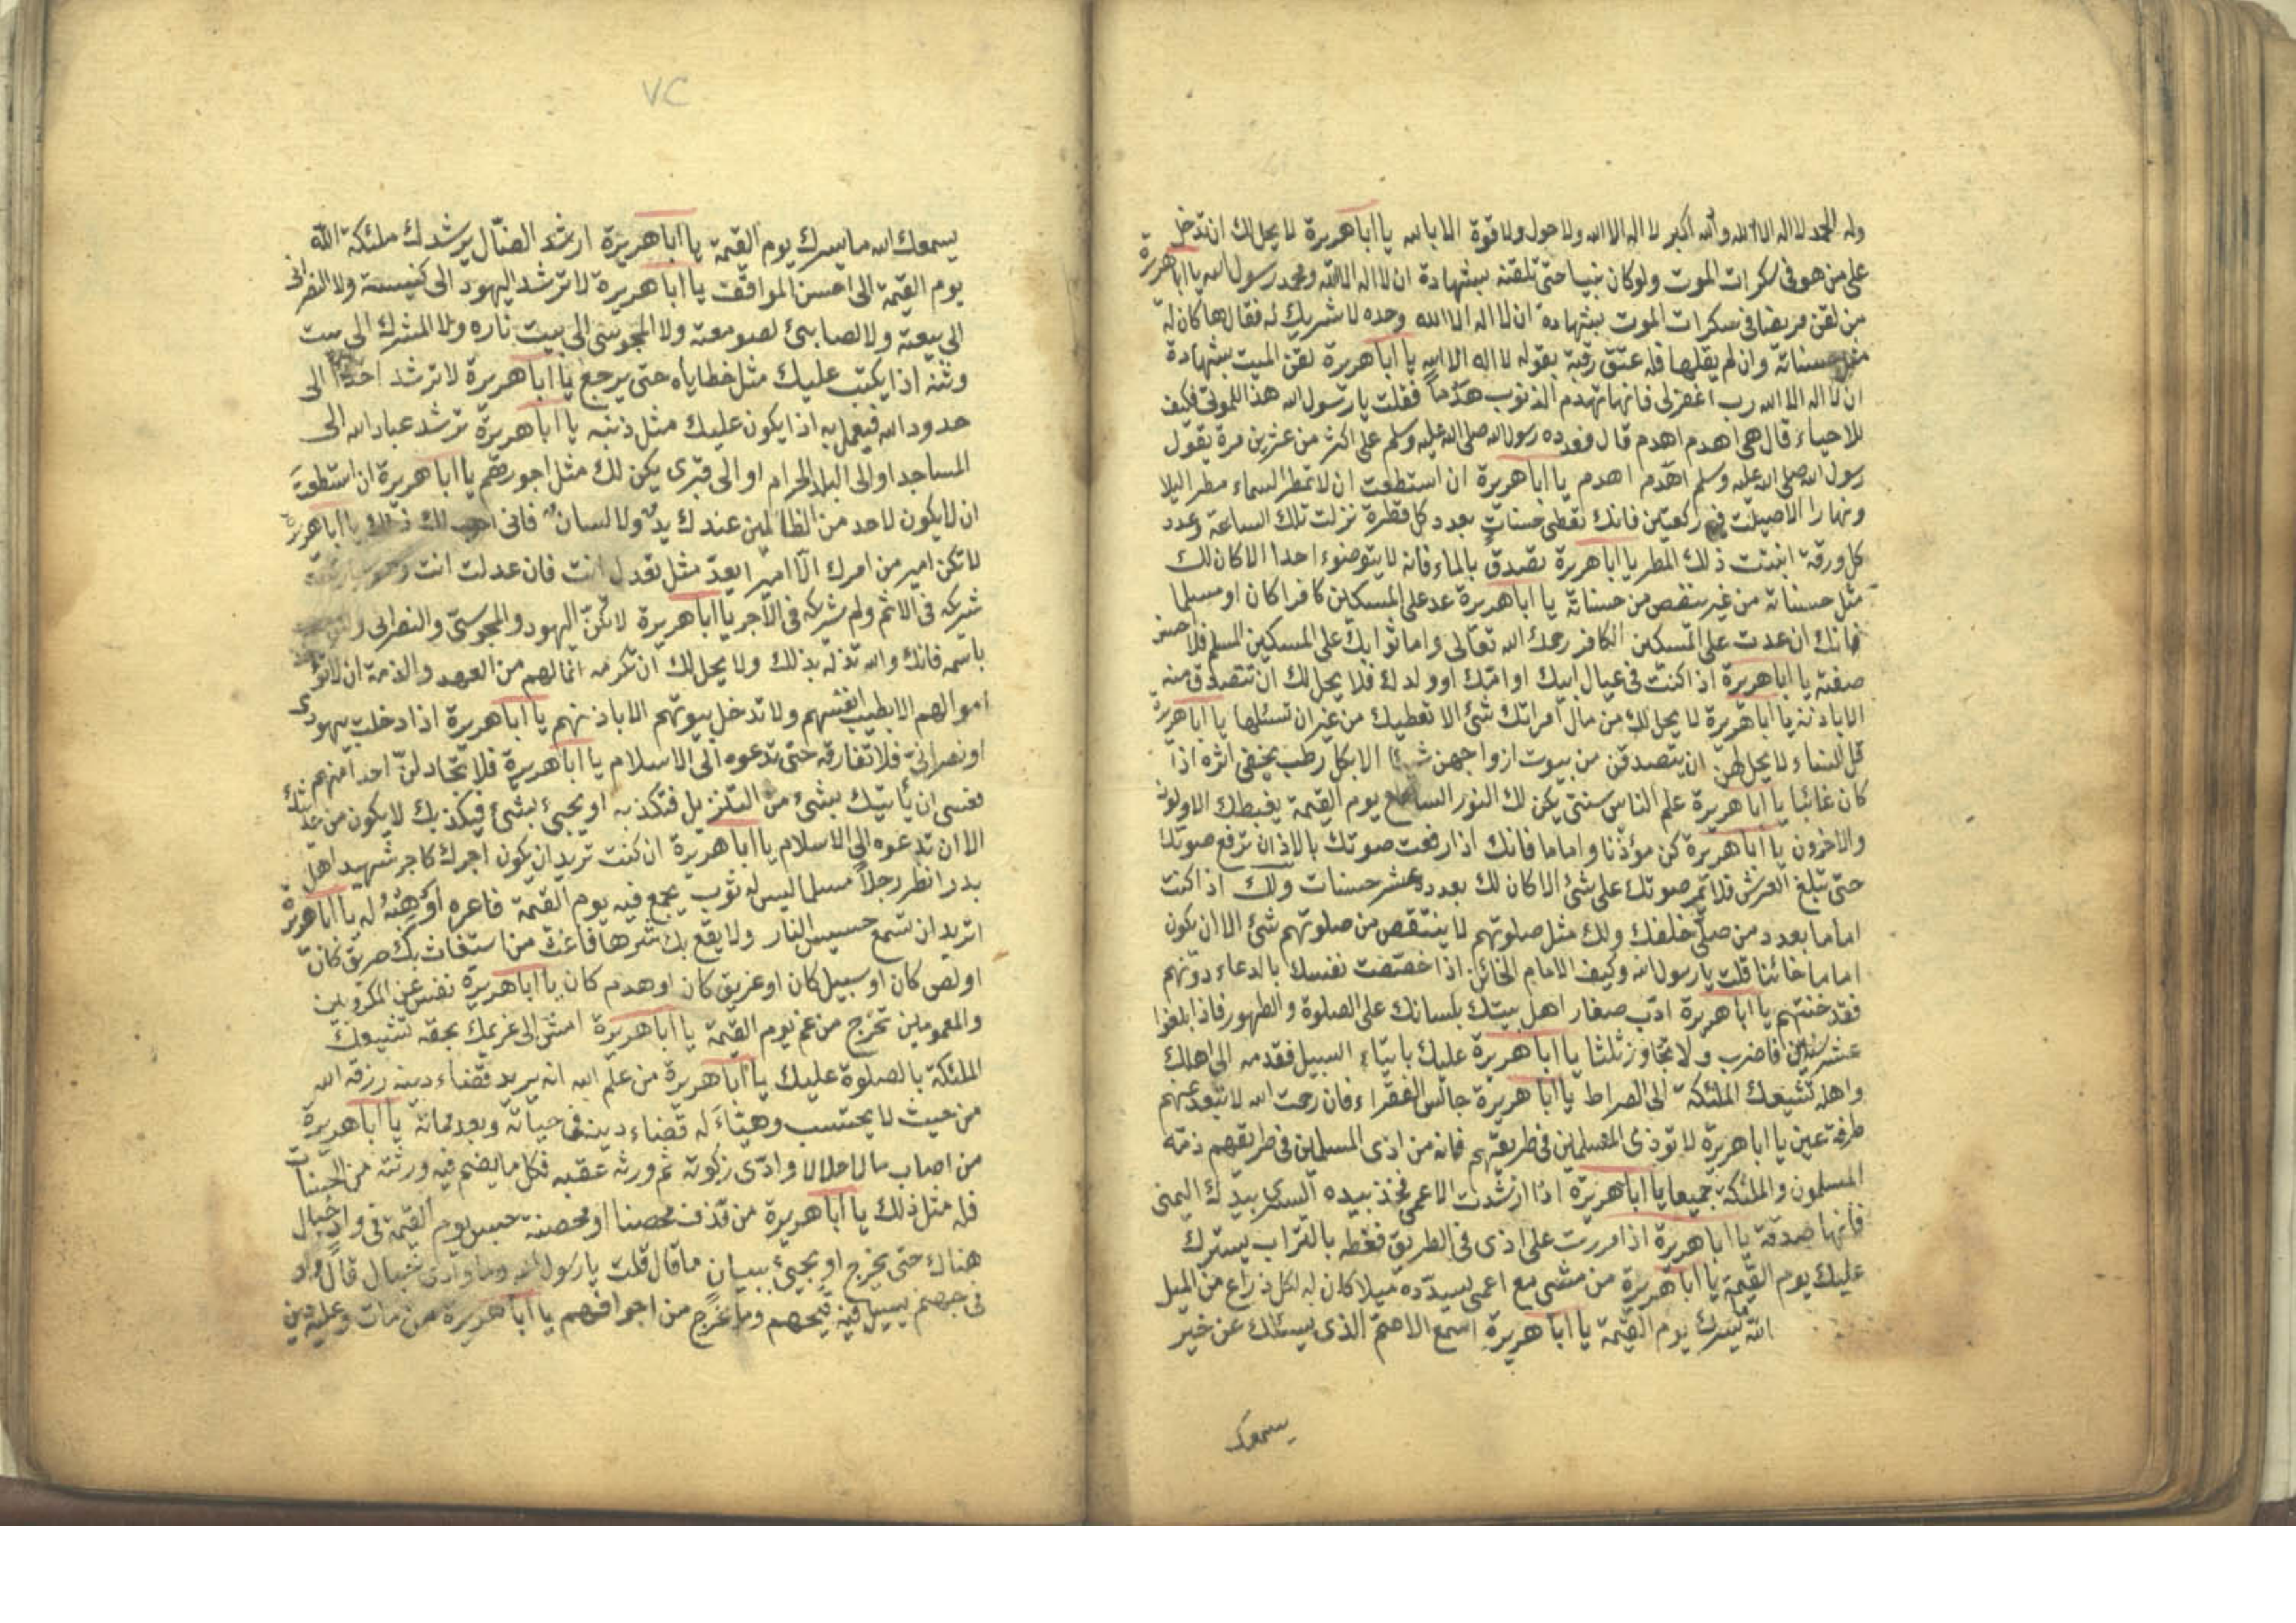 وله الحمد لا اله الا الله والله اكبر لا اله الا الله ولا حول ولا قوة الا بالله يا ابا هريرة لا يحل لك ان تدخل
على من هو فى سكرات الموت ولو كان نبيا حتى تلقنه بشهادة ان لا اله الا الله ومحمد رسول الله يا ابا هريرة
من لقن مريضا فى سكرات الموت بشهادة ان لا اله الا الله وحده لا شريك له فقالها كان له
مثل حسناته وان لم يقلها فله عتق رقبة بقوله لا اله الا الله يا ابا هريرة لقن الميت بشهادة
ان لا اله الا الله رب اغفر لى فانها تهدم الذنوب هدما فقلت يا رسول الله هذا للموتى فكيف
للاحياء قال هى اهدم اهدم قال فعده رسول الله صلى الله عليه وسلم على اكثر من عشرين مرة يقول
رسول الله صلى الله عليه وسلم اهدم اهدم يا ابا هريرة ان استطعت ان لا تمطر السماء مطرا ليلا
ونهارا الا صليت ركعتين فانك تعطى حسنات بعدد كل قطرة نزلت تلك الساعة وعدد
كل ورقة انبتت ذلك المطر يا ابا هريرة تصدق بالماء فانه لا يتوضوء احدا الا كان لك
مثل حسناته من غير ينقص من حسناته يا ابا هريرة عد على المسكين كافرا كان او مسلما
فانك ان عدت على المسكين الكافر رحمك الله تعالى واما ثوابك على المسكين المسلم فلا احسن
صفته يا ابا هريرة اذا كنت فى عيال ابيك او امك او ولدك فلا يحل لك ان تتصدق منه
الا باذنه يا ابا هريرة لا يحل لك من مال امراتك شئ الا تعطيك من غير ان تسئلها يا ابا هريرة
قل للنساء لا يحل لهن ان يتصدقن من بيوت ازواجهن شيئا الا بكل رطب يخفى اثره اذا
كان غائبا يا ابا هريرة علم الناس سنتى يكن لك النور الساطع يوم القيمة يغبطك الاولون
والاخرون يا ابا هريرة كن مؤذنا واماما فانك اذا رفعت صوتك بالاذان ترفع صوتك
حتى تبلغ العرش فلا تمر صوتك على شئ الا كان لك بعدده عشر حسنات ولك اذا كنت
اماما بعدد من صلى خلفك ولك مثل صلوتهم لا ينتقص من صلوتهم شئ الا ان يكون
اماما خائنا قلت يا رسول الله وكيف الامام الخائن اذا خصصت نفسك بالدعاء دونهم
فقد خنتهم يا ابا هريرة ادب صغار اهل بيتك بلسانك على الصلوة والطهور فاذا بلغوا
عشر سنين فاضرب ولا تجاوز ثلثا يا ابا هريرة عليك بابناء السبيل فقدمه الى اهلك
واهله تشيعك الملئكة الى الصراط يا ابا هريرة جالس الفقراء فان رحمت الله لا تبعد عنهم
طرفة عين يا ابا هريرة لا توذى المسلمين فى طريقهم فانه من اذى المسلمين فى طريقهم ذمه
المسلمون والملئكة جميعا يا ابا هريرة اذا ارشدت الاعمى فخذ بيده اليسرى بيدك اليمنى
فانها صدقة يا ابا هريرة اذا مررت على اذى فى الطريق فغطه بالتراب يسترك
عليك يوم القيمة يا ابا هريرة من مشى مع اعمى يسدده ميلا كان له لكل ذراع من الميل
الله ما يسرك يوم القيمة يا ابا هريرة اسمع الاصم الذى يسئلك عن خير
يسمعك
٧٢
يسمعك الله ما يسرك يوم القيمة يا ابا هريرة ارشد الضال يرشدك ملئكة الله
يوم القيمة الى احسن المواقف يا ابا هريرة لا ترشد اليهود الى كنيسته ولا النصرانى
الى بيعته ولا لصابئ لصومعته ولا المجوسى الى بيت ناره ولا المشرك الى بيت
وثنه اذا يكتب عليك مثل خطاياه حتى يرجع يا ابا هريرة لا ترشد احدا الى
حدود الله فيعمل به اذا يكون عليك مثل ذنبه يا ابا هريرة ترشد عباد الله الى
المساجد او الى البلد الحرام او الى قبرى يكن لك مثل اجورهم يا ابا هريرة ان استطعت
ان لا يكون لاحد من الظالمين عندك يد ولا لسان فانى احب لك ذلك يا ابا هريرة
لا تكن امير من امرك الا امير ابعد مثل تعدل انت فان عدلت انت
شريكه فى الاثم ولم شركه فى الاجر يا ابا هريرة لا تكن اليهود والمجوسى والنصرانى
باسمه فانك والله تذله بذلك ولا يحل لك ان تكرمه انما لهم من العهد والذمة ان لا تؤ
اموالهم الا بطيب انفسهم ولا تدخل بيوتهم الا باذنهم يا ابا هريرة اذا دخلت يهودى
او نصرانى فلا تفارقه حتى تدعوه الى الاسلام يا ابا هريرة فلا تجادلن احدا منهم
فعسى ان يأتيك بشئ من التنزيل فتكذبه او يجيئ بشئ فيكذبك لا يكون من
الا ان تدعوه الى الاسلام يا ابا هريرة ان كنت تريد ان يكون اجرك كاجر شهيد اهل
بدر انظر رجلا مسلما ليس له ثوب يجمع فيه يوم القيمة فاعره او له يا ابا هريرة
اتريد ان تسمع حسيس النار ولا يقع بك شرها فاغث من استغاث بك حريق كان
او لص كان او سبيل كان او غريق كان او هدم كان يا ابا هريرة نفس عن المكروبين
والمغمومين تخرج من غم يوم القيمة يا ابا هريرة امش الى غريمك بحقه تشيعك
الملئكة بالصلوة عليك يا ابا هريرة من علم الله انه يريد قضاء دينه رزقه الله
من حيث لا يحتسب وهيئاء له قضاء دينه فى حياته وبعد مماته يا ابا هريرة
من اصاب مالا حلالا وادى زكوته ثم ورثه عقبه فكل ما يضم فيه ورثته من الحسنات
فله مثل ذلك يا ابا هريرة من قذف محصنا او محصنة حبس يوم القيمة فى وادى خبال
هناك حتى يخرج او يجيئ ببيان ما قال قلت يا رسول الله وما وادى خبال قال واد
فى جهنم يسيل فيه قيحهم وما يخرج من اجوافهم يا ابا هريرة من مات وعليه دين